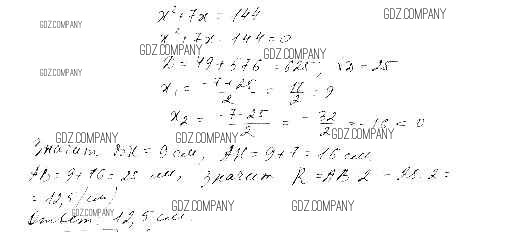 x² + 7x = 144
GDZ.COMPANY
GDZ.COMPANY
x² + 7x - 144 = 0
GDZ.COMPANY
GDZ.COMPANY
D = 49 + 576 = 625, √D = 25
GDZ.COMPANY
x₁ = (-7+25)/2 = /2 = 9
x₂ = (-7-25)/2 = -32/2 = -16 < 0
GDZ.COMPANY
GDZ.COMPANY
GDZ.COMPANY
Значит = 9 см, AH = 9 + 7 = 16 см
AB = 9 + 16 = 25 см, значит R = AB : 2 = 25 : 2 =
= 12,5 (см)
GDZ.COMPANY
GDZ.COMPANY
GDZ.COMPANY
Ответ: 12,5 см.